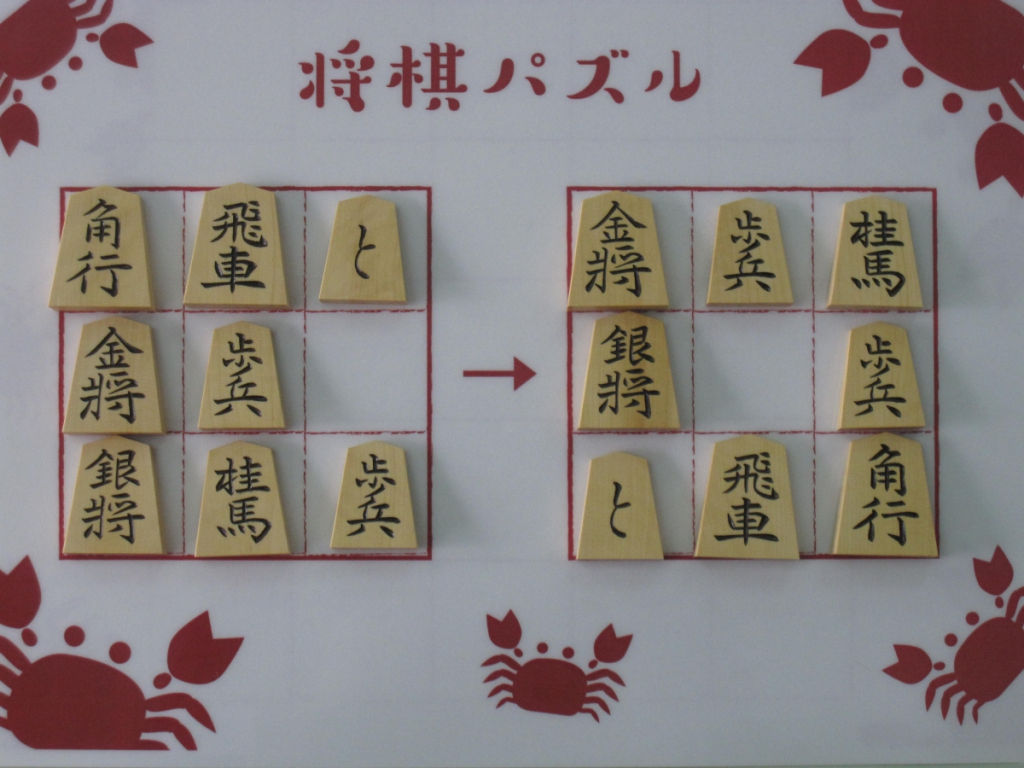 将棋パズル
角行 飛車 と 金將 歩兵 桂馬
金將 歩兵 銀將 歩兵
銀將 桂馬 歩兵 と 飛車 角行